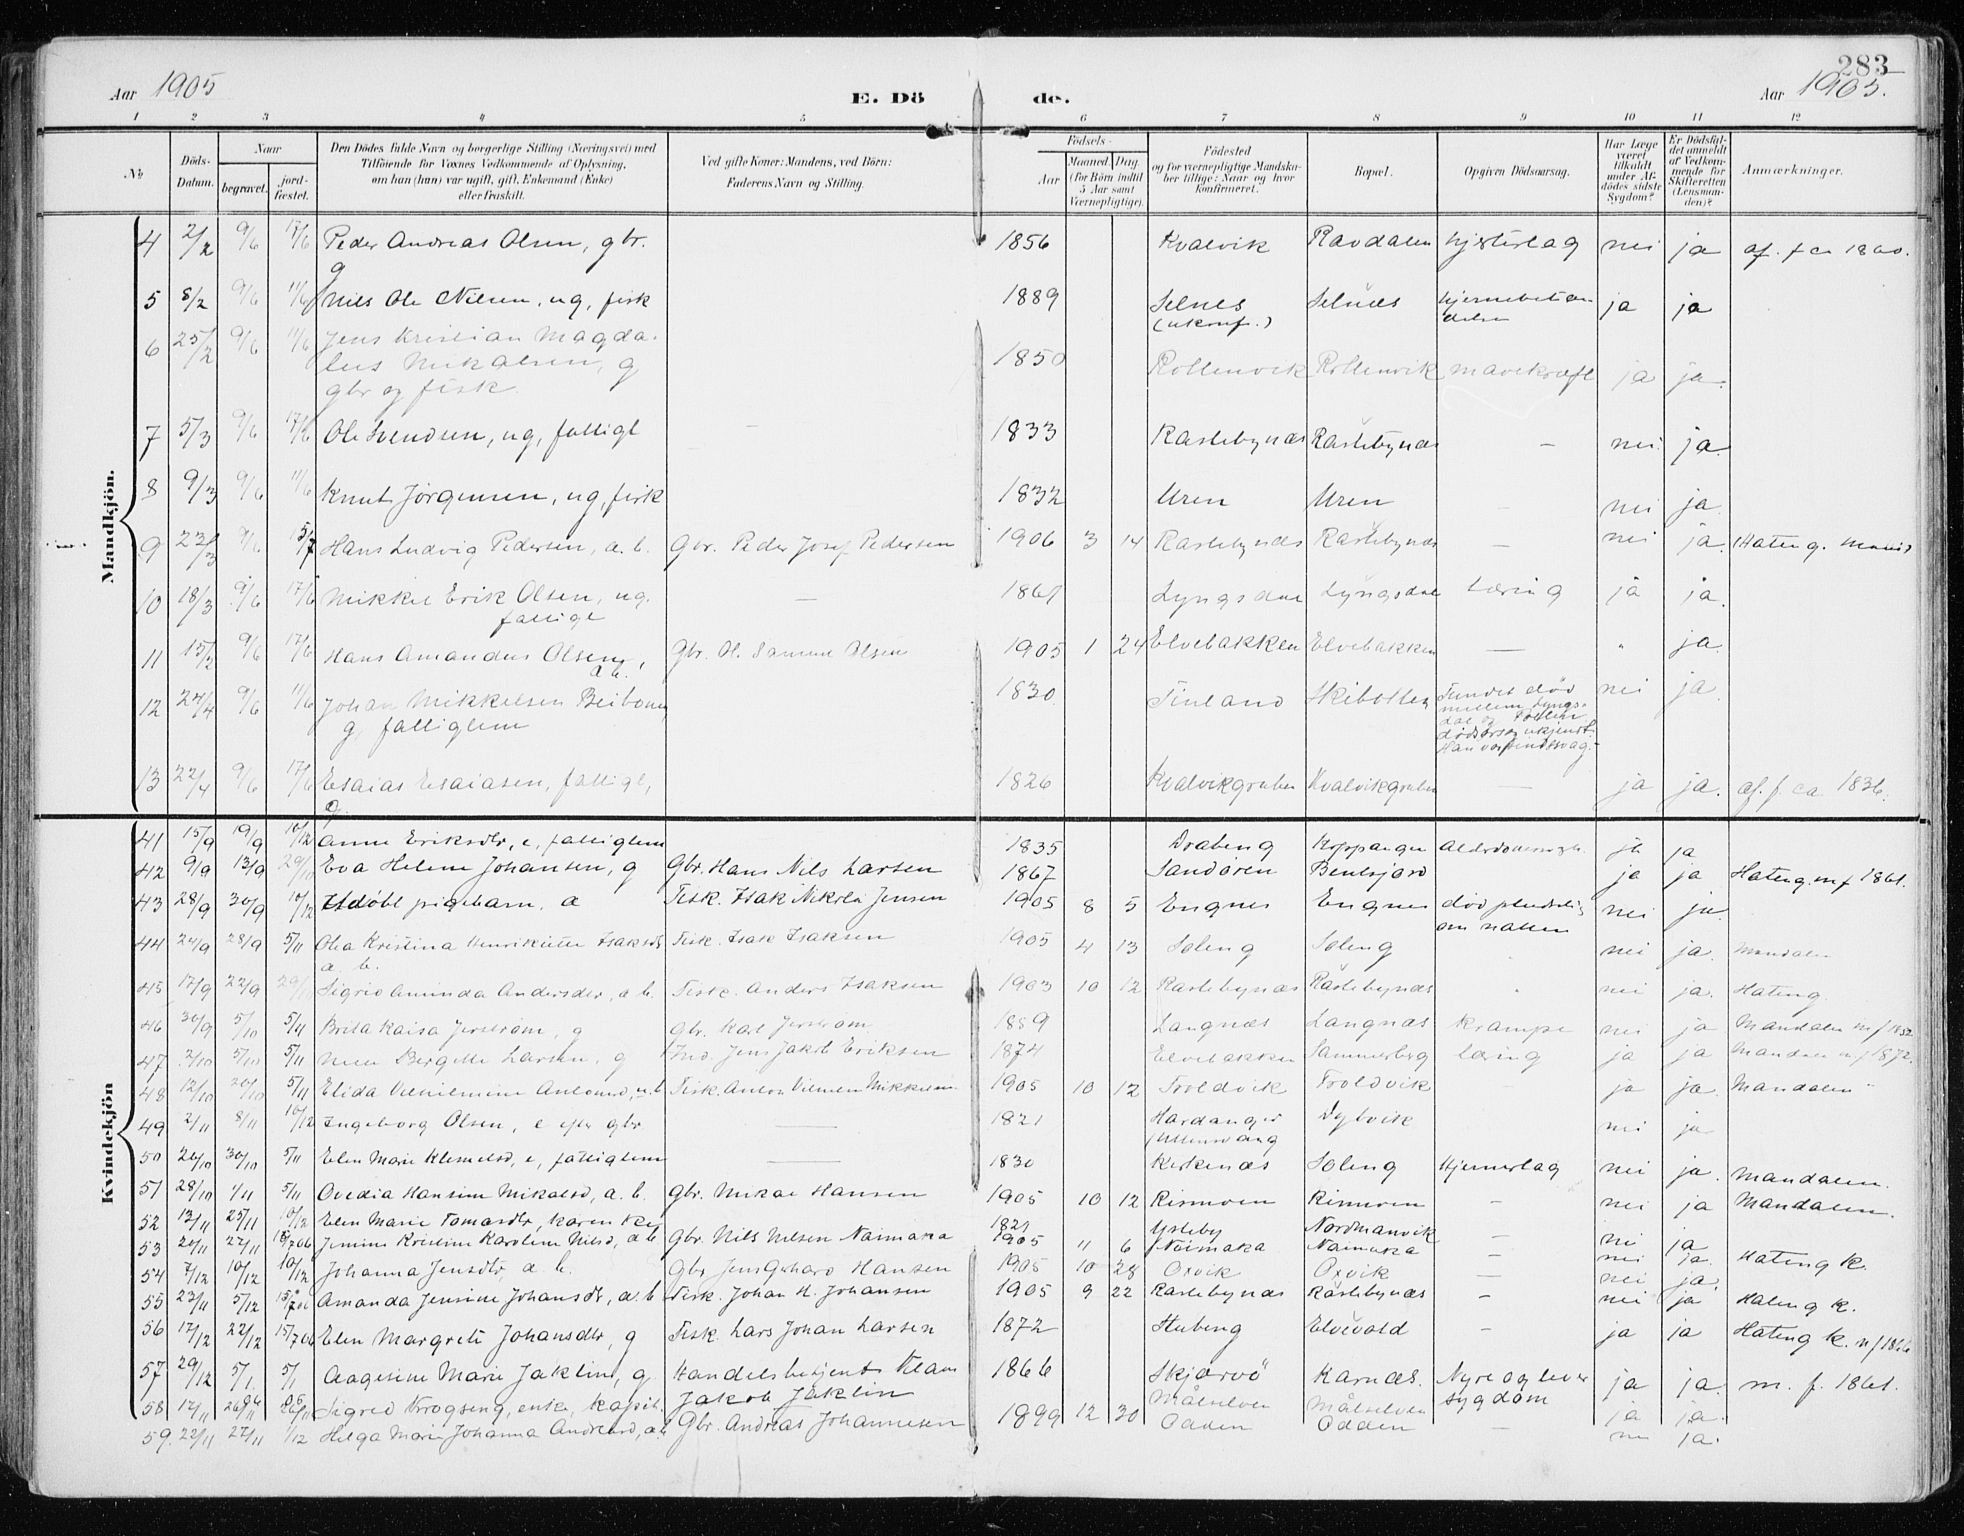 283
Aar 1905
E. Dö
de.
Aar 1905.
1 2 3 4 5 6 7 8 9 10 11 12
№
Döds-
Datum.
Naar
begravet.
jord-
fæstet.
Den Dödes fulde Navn og borgerlige Stilling (Næringsvei) med
Tilföiende for Voxnes Vedkommende af Oplysning,
om han (hun) var ugift, gift, Enkemand (Enke)
eller fraskilt.
Ved gifte Koner: Mandens, ved Börn:
Faderens Navn og Stilling.
Födsels-
Aar
Maaned. Dag.
(for Börn indtil
5 Aar samt
Værnepligtige).
Födested
og for værnepligtige Mandska-
ber tillige: Naar og hvor
konfirmeret.
Bopæl.
Opgiven Dödsaarsag.
Har Læge
været
tilkaldt
under Af-
dödes sidste
Sygdom?
Er Dödsfal-
det anmeldt
af Vedkom-
mende for
Skifteretten
(Lensman-
den)?
Anmærkninger.
Mandkjön.
4 2/2 9/6 17/6 Peder Andreas Olsen, gbr. 1856 Kvalvik Ravdalen hjerteslag nei ja af. f ca 1860.
g
5 8/2 9/6 11/6 Nils Ole Nilsen, ug, fisk 1889 Selnes Selnæs hjernebetæn- ja ja
(ukonf.) delse
6 25/2 9/6 11/6 Jens Kristian Magda-
lus Mikalsen, g 1850 Rottenvik Rottenvik mavekræft ja ja.
gbr og fisk.
7 5/3 9/6 17/6 Ole Svendsen, ug, fattigl — 1833 Rastebynæs Rastebynæs — nei ja.
8 9/3 9/6 11/6 Knut Jørgensen, ug, fisk 1832 Uren Uren — nei ja.
9 23/3 9/6 5/7 Hans Ludvig Pedersen, a. b. Gbr. Peder Josef Pedersen 1906 3 14 Rastebynæs Rastebynæs — nei ja.
10 18/3 9/6 17/6 Mikkel Erik Olsen, ug. — 1867 Lyngsdal Lyngsdal tæring ja ja.
fattigl
11 15/3 9/6 17/6 Hans Amandus Olsen, Gbr. Ol. Samuel Olsen 1905 1 24 Elvebakken Elvebakken — " ja.
a b.
12 24/4 9/6 11/6 Johan Mikkelsen 1830. Finland Skibotten Fundet død nei ja.
g, fattiglem mellem Lyngs-
dal og
dødsårsag ukjent.
Han var sindssvag.
13 22/4 9/6 17/6 Esaias Esaiasen, fattigl, 1826 Kvalvikgruben Kvalvikgruben — ja ja. af. f. ca 1836.
g.
Kvindekjön
41 15/9 19/9 10/12 Anne Eriksdtr, e, fattiglem 1835 Draheng Koppangen ja ja
42 9/9 13/9 29/10 Eva Helene Johansen, g Gbr. Hans Nils Larsen 1867 Sandøren Bentsjord ja ja Hateng. m f 1861.
43 28/9 30/9 10/12 Udøbt pigebarn, a Fisk. Isak Nikolai Jensen 1905 8 5 Engnes Engnes død pludselig nei ja.
om natten
44 24/9 28/9 5/11 Olia Kristina Henriette Isaksd Fisk. Isak Isaksen 1905 4 13 Soleng Soleng nei ja. Mandalen
a. b.
45 17/9 22/9 29/11 Sigrid Aminda Andersdtr, a. b. Fisk. Anders Isaksen 1903 10 12 Rastebynæs Rastebynæs nei ja. Hateng.
46 30/9 5/10 5/11 Brita Kaisa Jerstrøm, g gbr. Karl Jerstrøm 1859 Langnæs Langnæs Krampe nei ja Mandalen m f 1852.
47 2/10 5/10 5/11 Bergitte Larsen, g Ind. Jens Jakob Eriksen 1874 Elvebakken Sammerberg tæring ja ja Mandalen m f 1872.
48 12/10 20/10 5/11 Elida Vilhilmine Antonsd, a. b. Fisk. Anton Vilmen Mikkelsen 1905 10 12 Troldvik Troldvik ja ja. Mandalen
49 2/11 8/11 10/12 Ingeborg Olsen, e efter gbr — 1821 Hardanger Dybvik nei ja
(Ullensvang
50 20/10 30/10 5/11 Elen Marie Klemetsd, e, fattiglem — 1830 Kirkenæs Soleng Hjerneslag nei ja. Mandalen.
51 28/10 1/11 5/11 Ovedia Hansine Mikalsd, a. b. gbr. Mikal Hansen 1905 10 12 Rismoen Rismoen — nei ja Mandalen.
52 13/11 25/11 10/12 Elen Marie Tomasdtr, 1821 Ysteby Nordmanvik nei ja
53 20/11 22/11 15/706 Jensine Kristine Karoline Nilsd, a b gbr. Nils Nilsen Naimaka 1905 11 6 Noimaka Naimaka — nei ja. Hateng k.
54 7/12 10/12 10/12 Johanna Jensdtr, a b. Gbr. Jens Gerhard Hansen 1905 10 28 Oxvik Oxvik — nei ja.
55 23/11 5/12 15/706 Amanda Jensine Johansdtr, a. b Fisk. Johan H. Johansen 1905 9 22 Rastebynæs Rastebynæs — nei ja Hateng k.
56 17/12 22/12 15/706 Elen Margrete Johansdtr, g Fisk Lars Johan Larsen 1872 Stubeng Elvevold — ja ja Hateng k. m f 1866
57 29/12 5/1. 5/1 Aagesine Marie Jaklin, g Handelsbetjent Klaus 1866 Skjærvö Karnæs. Nyre og lever ja ja. m. f. 1861.
Jakob Jaklin sygdom
58 17/11 26/11 26/11 Sigrid Krogseng, enke, Målselven Målselven ja ja.
59. 22/11 27/11 1/12 Helga Marie Johanna Andreasd, a b Gbr. Andreas Johannesen 1899 12 30 Odden Odden — nei ja.